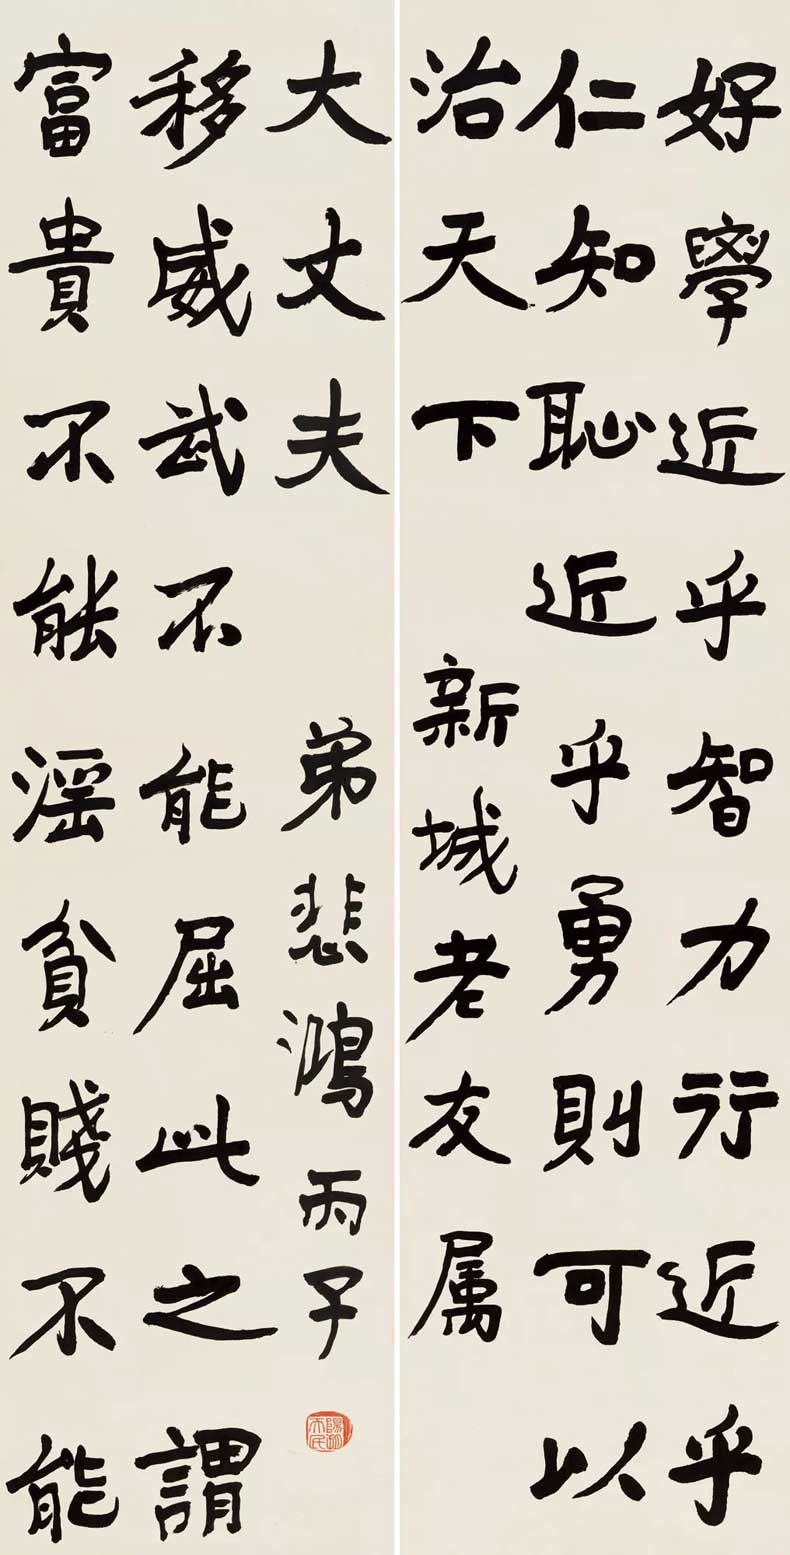 好學近乎智力行近乎
仁知恥近乎勇則可以
治天下
新城老友属
富貴不能滛貧賤不能
移威武不能屈此之謂
大丈夫
弟悲鴻丙子
陽朔天民